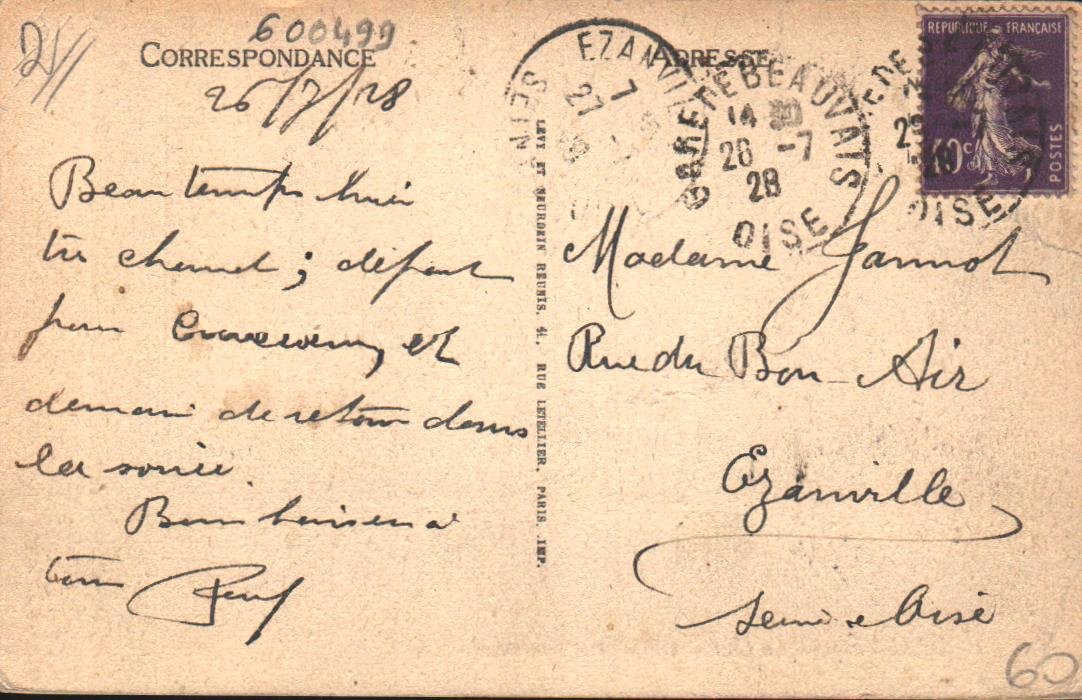 600499
CORRESPONDANCE
26/7/28
Beau temps
très chaud ; départ
pour et
demain de retour dans
la soirée
Bons baisers à
tous
LÉVY ET NEURDEIN RÉUNIS, 44, RUE LETELLIER, PARIS. IMP.
ADRESSE
EZANVILLE
27 7
SEINE
GARE DE BEAUVAIS
14
26 -7
28
OISE
RÉPUBLIQUE FRANÇAISE
40c
POSTES
28
OISE
Madame Jannot
Rue du Bon-Air
Ezanville
Seine & Oise
60